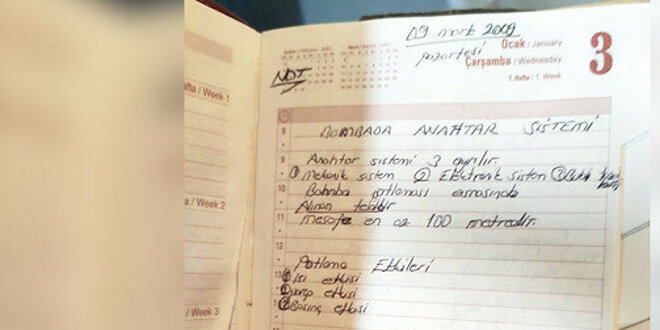 09 mart 2009
pazartesi
Ocak / January
Çarşamba / Wednesday
1. Hafta / 1. Week
3
NOT
fta / Week 1
a / Week 2
/ Week 3
8 BOMBADA ANAHTAR SİSTEMİ
9 Anahtar sistemi 3 ayrılır.
① Mekanik sistem ② Elektronik sistem ③
10 Bomba patlaması esnasında
Alınan tedbir
11 Mesafe en az 100 metredir.
12
Patlama Etkileri
13 ① Isı etkisi
② etkisi
③ Basınç etkisi